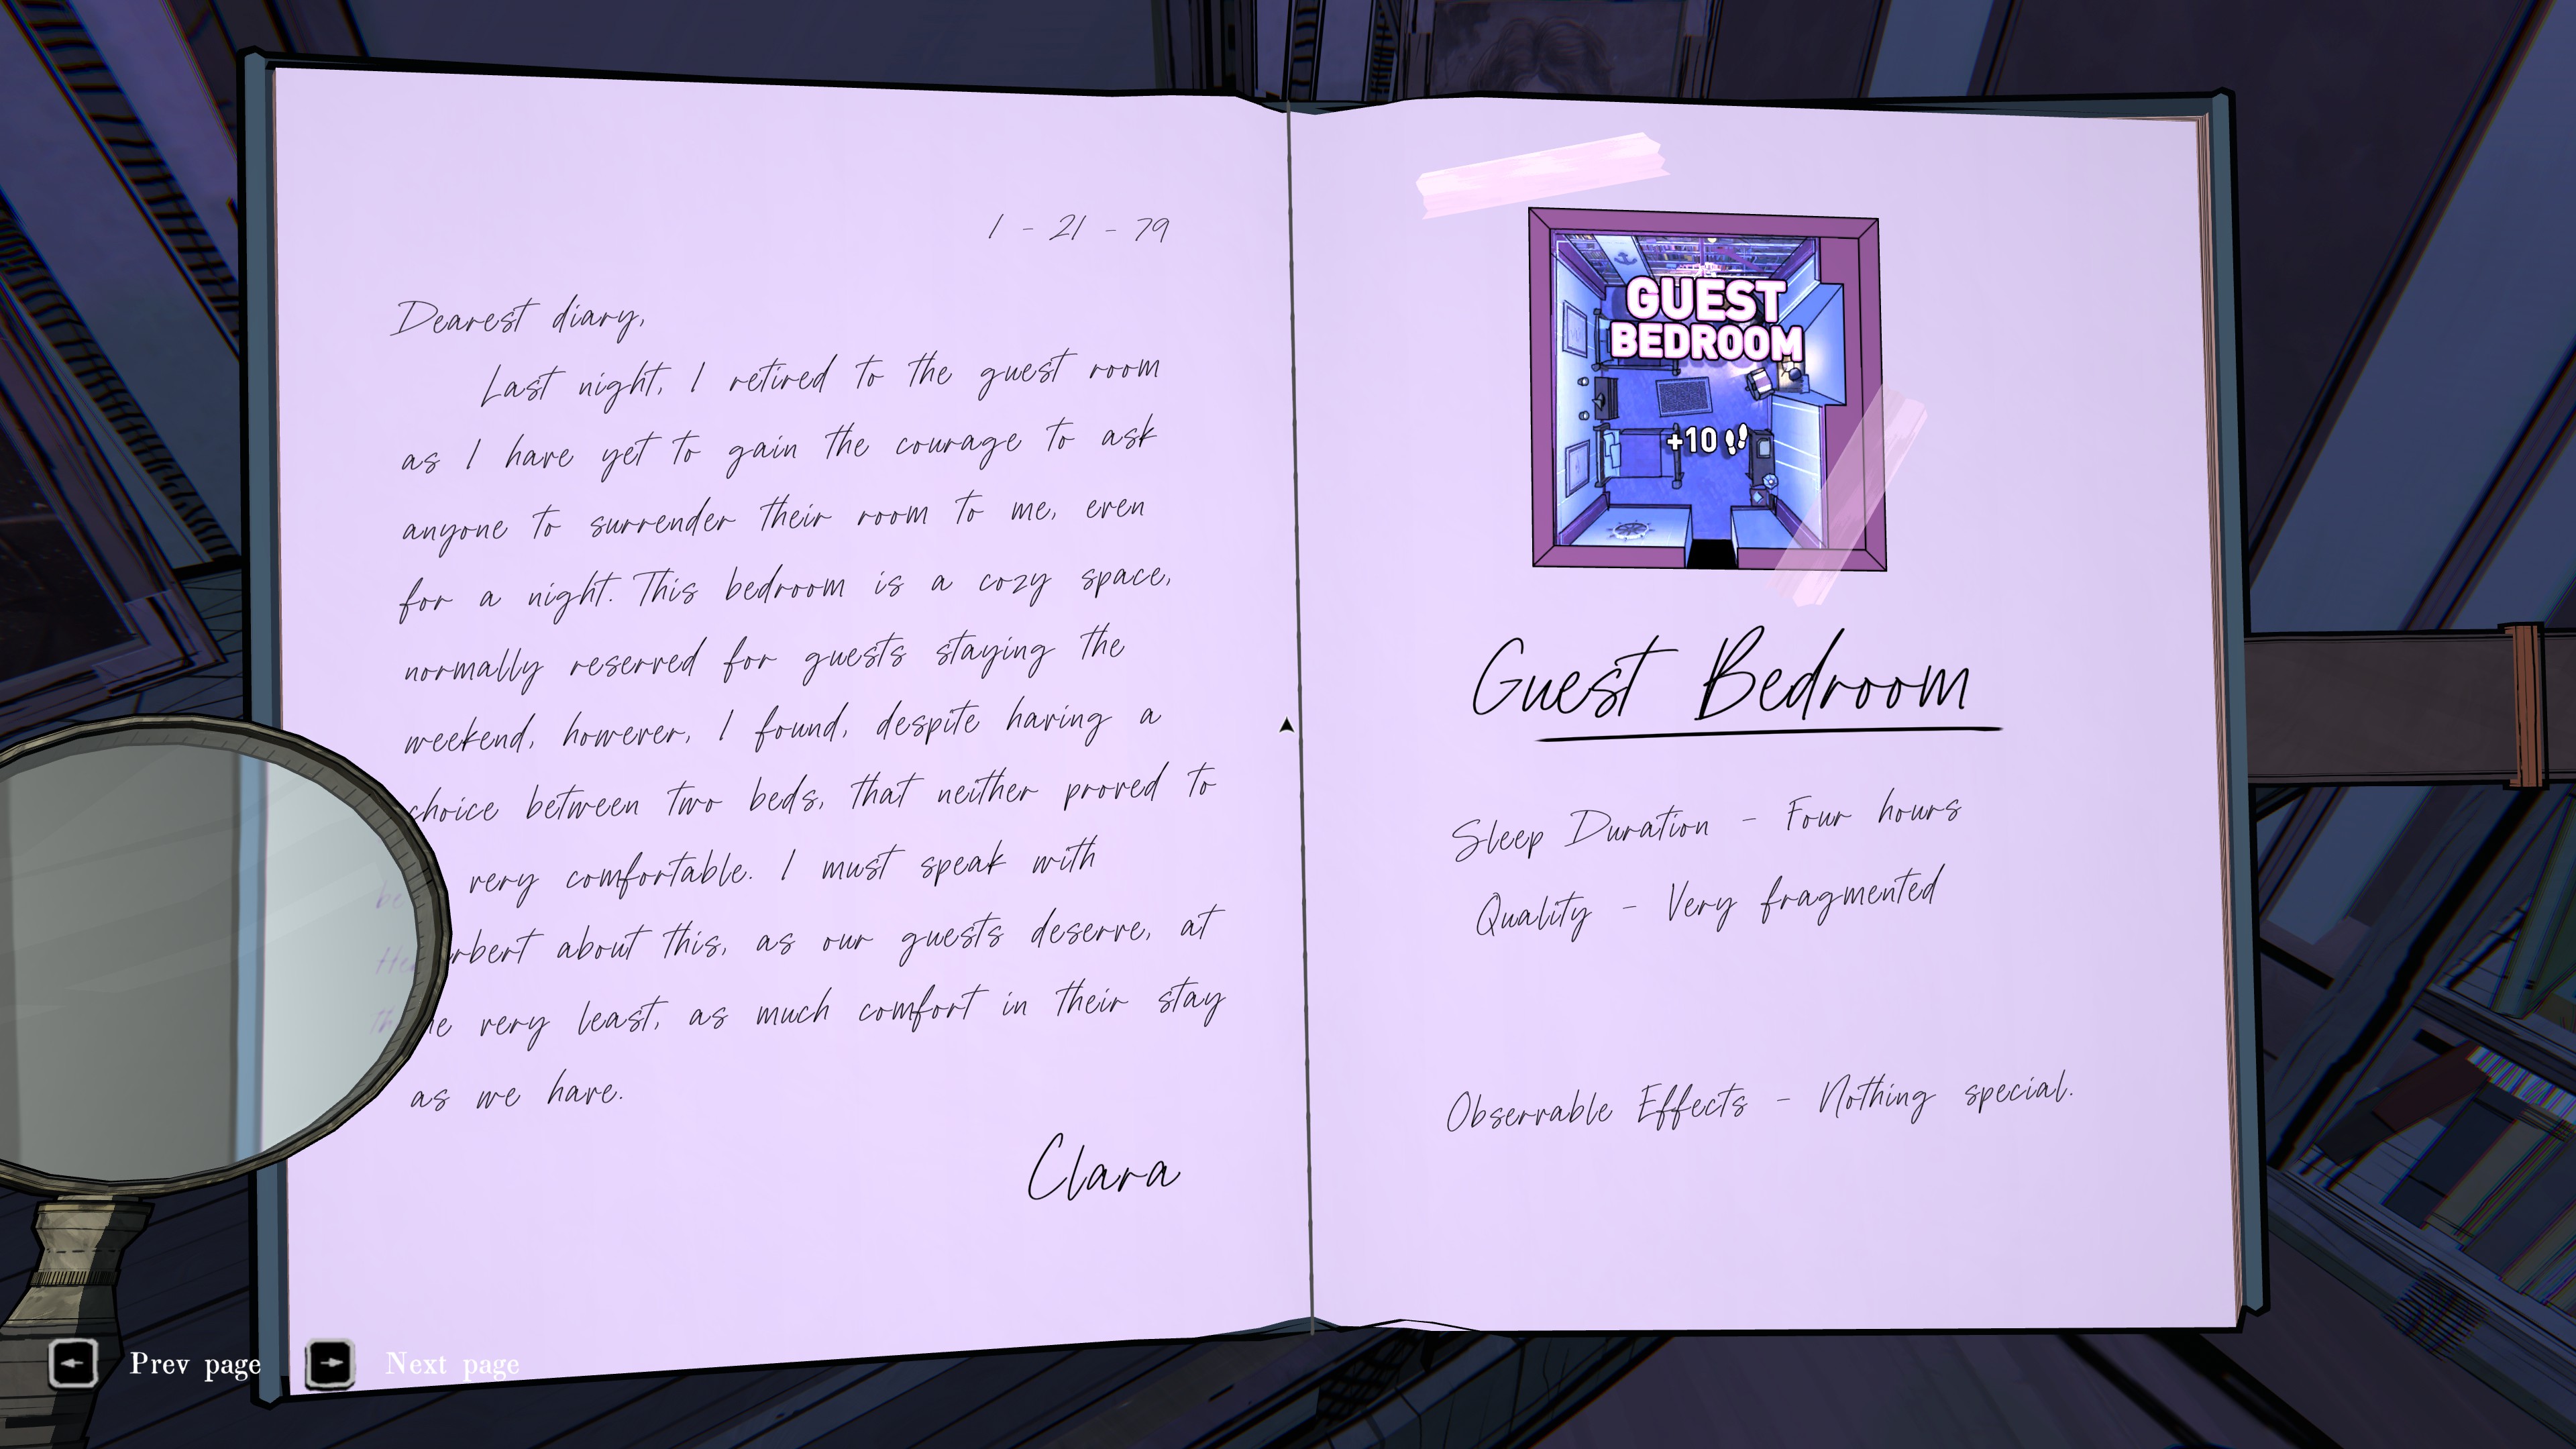 1 - 21 - 79
Dearest diary,
Last night, I retired to the guest room
as I have yet to gain the courage to ask
anyone to surrender their room to me, even
for a night. This bedroom is a cozy space,
normally reserved for guests staying the
weekend, however, I found, despite having a
choice between two beds, that neither proved to
be very comfortable. I must speak with
Herbert about this, as our guests deserve, at
the very least, as much comfort in their stay
as we have.
Clara
GUEST
BEDROOM
+10
Guest Bedroom
Sleep Duration - Four hours
Quality - Very fragmented
Observable Effects - Nothing special.
Prev page
Next page